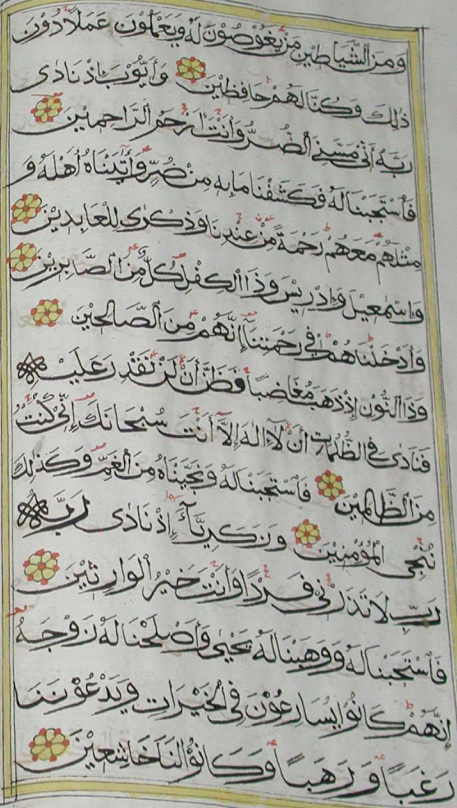 وَمِنَ الشَّيَاطِينِ مَنْ يَغُوصُونَ لَهُ وَيَعْمَلُونَ عَمَلًا دُونَ
ذَلِكَ وَكُنَّا لَهُمْ حَافِظِينَ وَأَيُّوبَ إِذْ نَادَى
رَبَّهُ أَنِّي مَسَّنِيَ الضُّرُّ وَأَنْتَ أَرْحَمُ الرَّاحِمِينَ
فَاسْتَجَبْنَا لَهُ فَكَشَفْنَا مَا بِهِ مِنْ ضُرٍّ وَآتَيْنَاهُ أَهْلَهُ وَ
مِثْلَهُمْ مَعَهُمْ رَحْمَةً مِنْ عِنْدِنَا وَذِكْرَى لِلْعَابِدِينَ
وَإِسْمَعِيلَ وَإِدْرِيسَ وَذَا الْكِفْلِ كُلٌّ مِنَ الصَّابِرِينَ
وَأَدْخَلْنَاهُمْ فِي رَحْمَتِنَا إِنَّهُمْ مِنَ الصَّالِحِينَ
وَذَا النُّونِ إِذْ ذَهَبَ مُغَاضِبًا فَظَنَّ أَنْ لَنْ نَقْدِرَ عَلَيْهِ
فَنَادَى فِي الظُّلُمَاتِ أَنْ لَا إِلَهَ إِلَّا أَنْتَ سُبْحَانَكَ إِنِّي كُنْتُ
مِنَ الظَّالِمِينَ فَاسْتَجَبْنَا لَهُ وَنَجَّيْنَاهُ مِنَ الْغَمِّ وَكَذَلِكَ
نُنْجِي الْمُؤْمِنِينَ وَزَكَرِيَّاءَ إِذْ نَادَى رَبَّهُ
رَبِّ لَا تَذَرْنِي فَرْدًا وَأَنْتَ خَيْرُ الْوَارِثِينَ
فَاسْتَجَبْنَا لَهُ وَوَهَبْنَا لَهُ يَحْيَى وَأَصْلَحْنَا لَهُ زَوْجَهُ
إِنَّهُمْ كَانُوا يُسَارِعُونَ فِي الْخَيْرَاتِ وَيَدْعُونَنَا
رَغَبًا وَرَهَبًا وَكَانُوا لَنَا خَاشِعِينَ